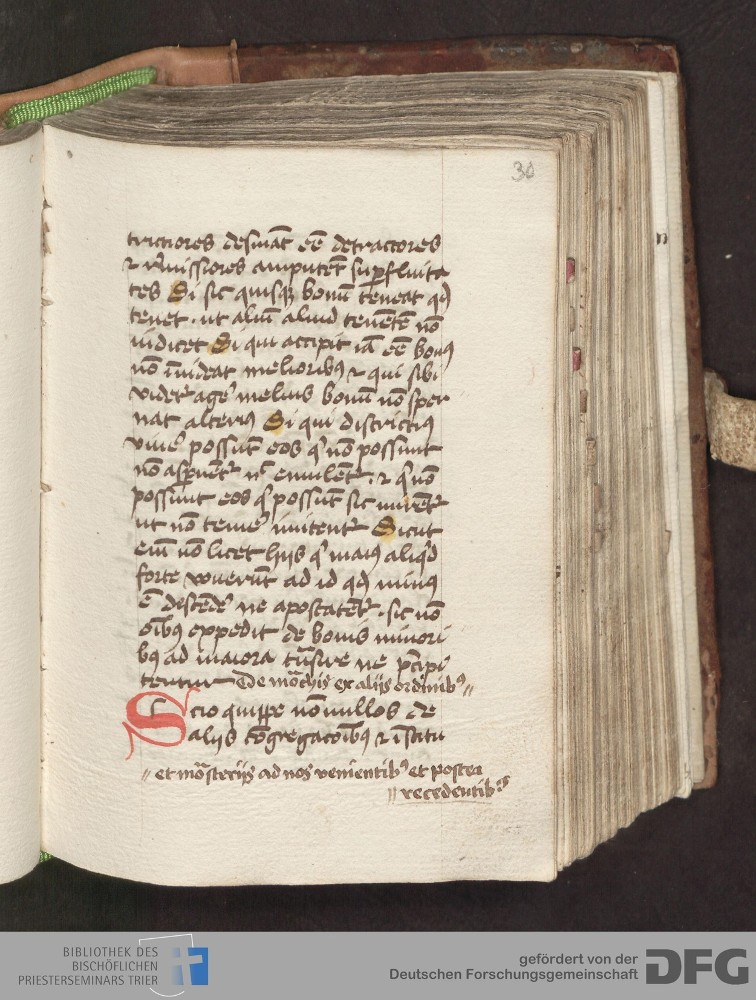 30
trictiores desināt eē detractores
⁊ rēmissiores amputēt suꝑfluita
tes Si sic quisqꝫ bonū teneat qđ
tenet · ut aliū aliud tenētē nō
iudicet Si qui accipit iā eē bonꝰ
nō īuideat melioribꝰ ⁊ qui sibi
videt᷑ age᷑ melius bonū nō sper
nat alteriꝰ Si qui districtiꝰ
viue᷑ possūt eos q̇ nō possunt
nō asp̄nēt᷑ nͨ emulēt᷑ · ⁊ q̇ nō
possunt eos q̇ possūt sic mirēt᷑
ut nō teme᷑ imitent᷑ Sicut
eīm nō licet hijs q̇ maiꝰ aliq̇d
forte voverūt ad id qđ minꝰ
ē descēde᷑ ne apostatēt᷑ · sic nō
oībꝰ expedit de bonis minori
bꝰ ad maiora trāsire ne p̄cipi
tentur De mōchis ex alijs ordinibꝰ //
Scio quippe nōnullos de
alijs cōgregacōibꝰ ⁊ īstitu
// et mōasterijs ad nos venientibꝰ et postea
// recedentibꝰ
BIBLIOTHEK DES
BISCHÖFLICHEN
PRIESTERSEMINARS TRIER
gefördert von der
Deutschen Forschungsgemeinschaft
DFG